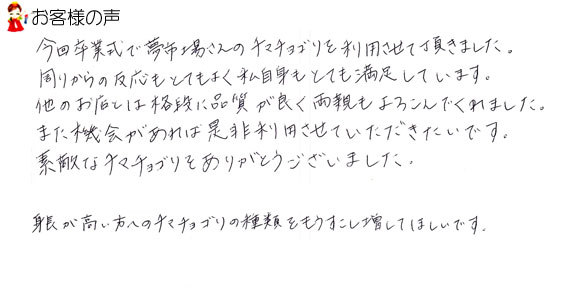 お客様の声
今回卒業式で夢市場さんのチマチョゴリを利用させて頂きました。
周りからの反応もとてもよく私自身もとても満足しています。
他のお店とは格段に品質が良く両親もよろこんでくれました。
また機会があれば是非利用させていただきたいです。
素敵なチマチョゴリをありがとうございました。
身長が高い方へのチマチョゴリの種類をもうすこし増してほしいです。